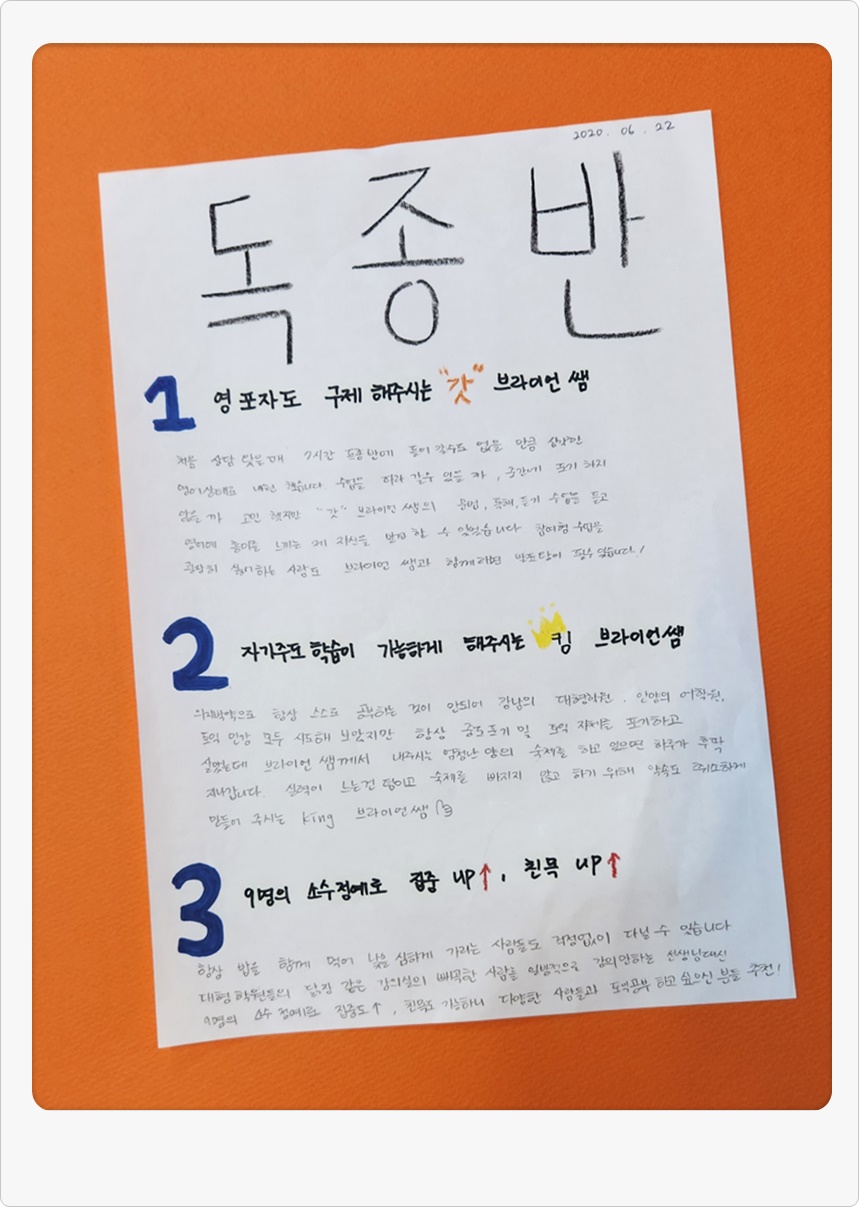 2020. 06. 22
독종반
1 영포자도 구제 해주시는 "갓" 브라이언 쌤
처음 상담 왔을때 7시간 표종반에 들어갈수도 없을 만큼 심각한
영어상태로 내원 했습니다. 수업을 따라 갈수 있을 까, 중간에 포기 하지
않을 까 고민 했지만 "갓" 브라이언 쌤의 문법, 독해, 듣기 수업을 듣고
영어에 흥미를 느끼는 제 자신을 발견 할 수 있었습니다 참여형 수업을
굉장히 싫어하는 사람도 브라이언 쌤과 함께라면 발표단이 될수 있습니다!
2 자기주도 학습이 가능하게 해주시는 킹 브라이언쌤
의지박약으로 항상 스스로 공부하는 것이 안되어 강남의 대형학원, 안양의 어학원,
토익 인강 모두 시도해 보았지만 항상 중도포기 및 토익 자체를 포기하고
살았는데 브라이언 쌤께서 내주시는 엄청난 양의 숙제를 하고 있으면 하루가 후딱
지나갑니다. 실력이 느는건 덤이고 숙제를 빠지지 않고 하기 위해 약속도 취소하게
만들어 주시는 king 브라이언쌤
3 9명의 소수정예로 집중 UP↑, 친목 UP↑
항상 밥을 함께 먹어 낯을 심하게 가리는 사람들도 걱정없이 다닐 수 있습니다
대형 학원들의 닭장 같은 강의실의 빼곡한 사람들 일방적으로 강의만하는 선생님대신
9명의 소수 정예로 집중도↑, 친목도 가능하니 다양한 사람들과 토익공부 하고 싶으신 분들 추천!